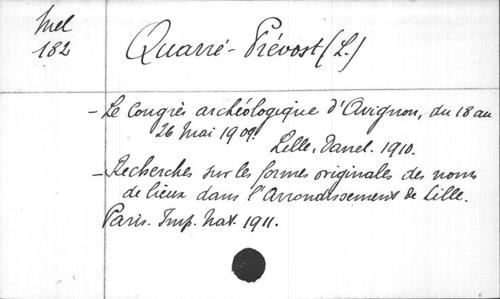 Mel
182
Quarré-Prévost (L.)
- Le Congrès archéologique d'Avignon, du 18 au
26 Mai 1909.
Lille, Danel. 1910.
- Recherches sur les formes originales des noms
de lieux dans l'Arrondissement de Lille.
Paris. Imp. Nat. 1911.